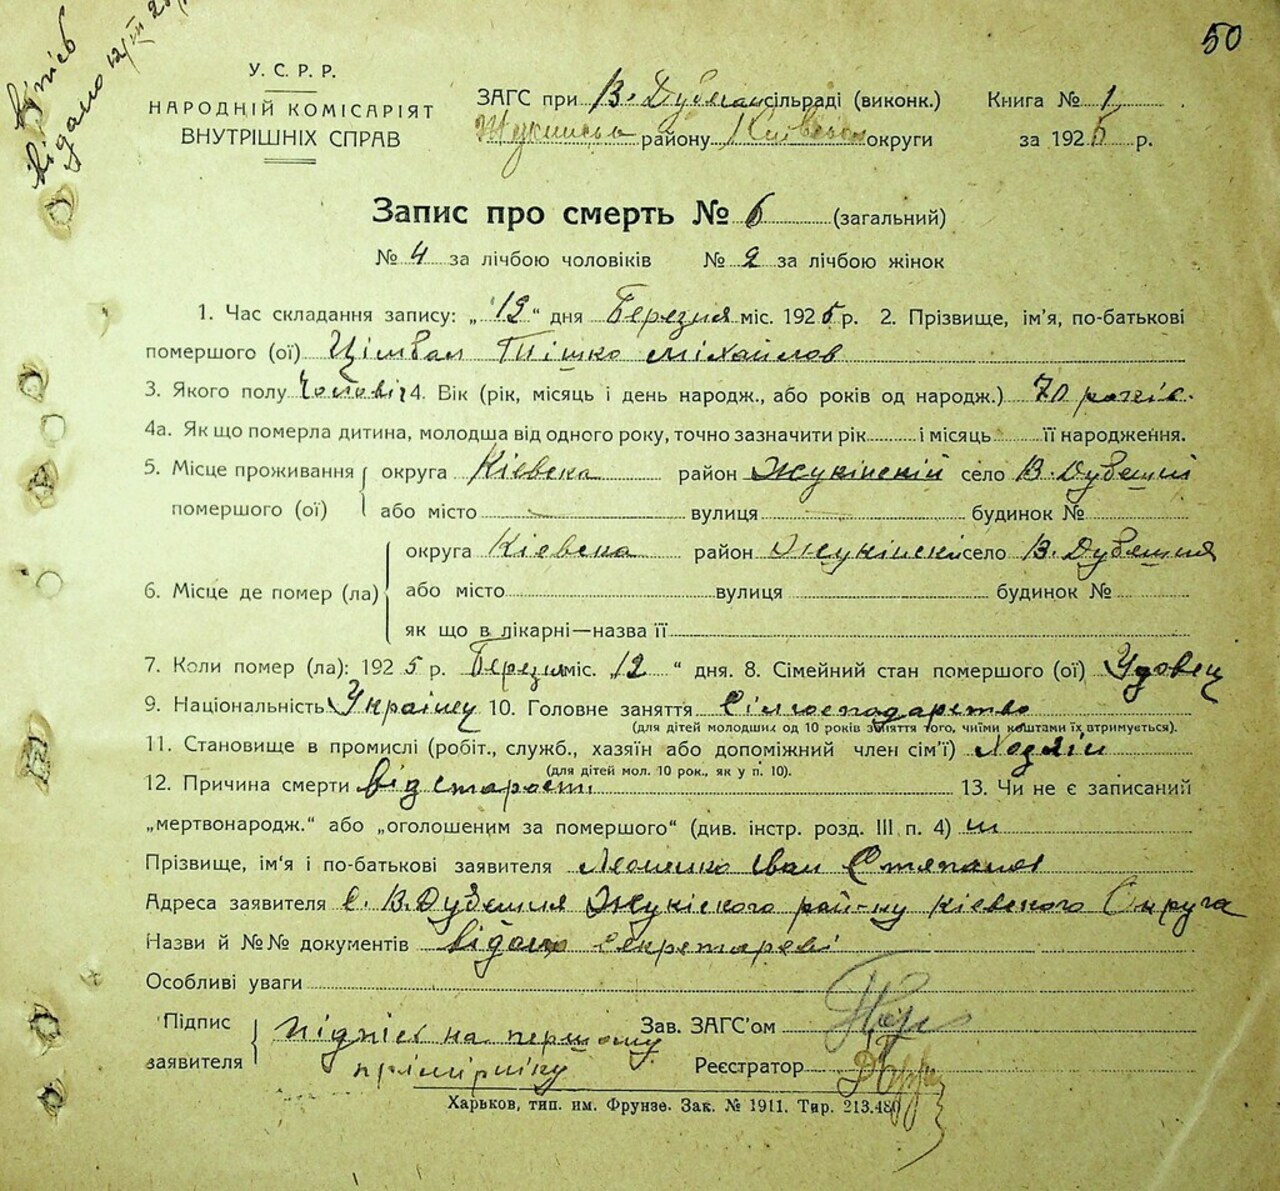 50
У. С. Р. Р.
НАРОДНІЙ КОМІСАРІЯТ
ВНУТРІШНІХ СПРАВ
відано 12/III 25
ЗАГС при В. Дубечан сільраді (виконк.) Книга № 1
району Київської округи за 1925 р.
Запис про смерть № 6 (загальний)
№ 4 за лічбою чоловіків № 2 за лічбою жінок
1. Час складання запису: „12“ дня Березня міс. 1925 р. 2. Прізвище, ім'я, по-батькові
помершого (ої) Цімбал Тішко Міхайлов
3. Якого полу Чоловіч 4. Вік (рік, місяць і день народж., або років од народж.) 70 років.
4а. Як що померла дитина, молодша від одного року, точно зазначити рік і місяць її народження.
5. Місце проживання помершого (ої) округа Кіевска район Жукінскій село В. Дубешня
або місто вулиця будинок №
6. Місце де помер (ла) округа Кіевска район Жукінскі село В. Дубешня
або місто вулиця будинок №
як що в лікарні—назва її
7. Коли помер (ла): 1925 р. Березня міс. „12“ дня. 8. Сімейний стан помершого (ої) Удовец
9. Національність Украінец 10. Головне заняття Сілгосподарство
(для дітей молодших од 10 років заняття того, чиїми коштами їх утримується).
11. Становище в промислі (робіт., служб., хазяїн або допоміжний член сім'ї) Хозяїн
(для дітей мол. 10 рок., як у п. 10).
12. Причина смерти від старості 13. Чи не є записаний
„мертвонародж.“ або „оголошеним за помершого“ (див. інстр. розд. III п. 4)
Прізвище, ім'я і по-батькові заявителя Іван Степанов
Адреса заявителя С. В. Дубешня Жукіского рай-ну Кіевского Округа
Назви й №№ документів відано секретареві
Особливі уваги
Підпис заявителя підпіс на першому
прімірніку
Зав. ЗАГС'ом
Реєстратор
Харьков, тип. им. Фрунзе. Зак. № 1911. Тир. 213.480